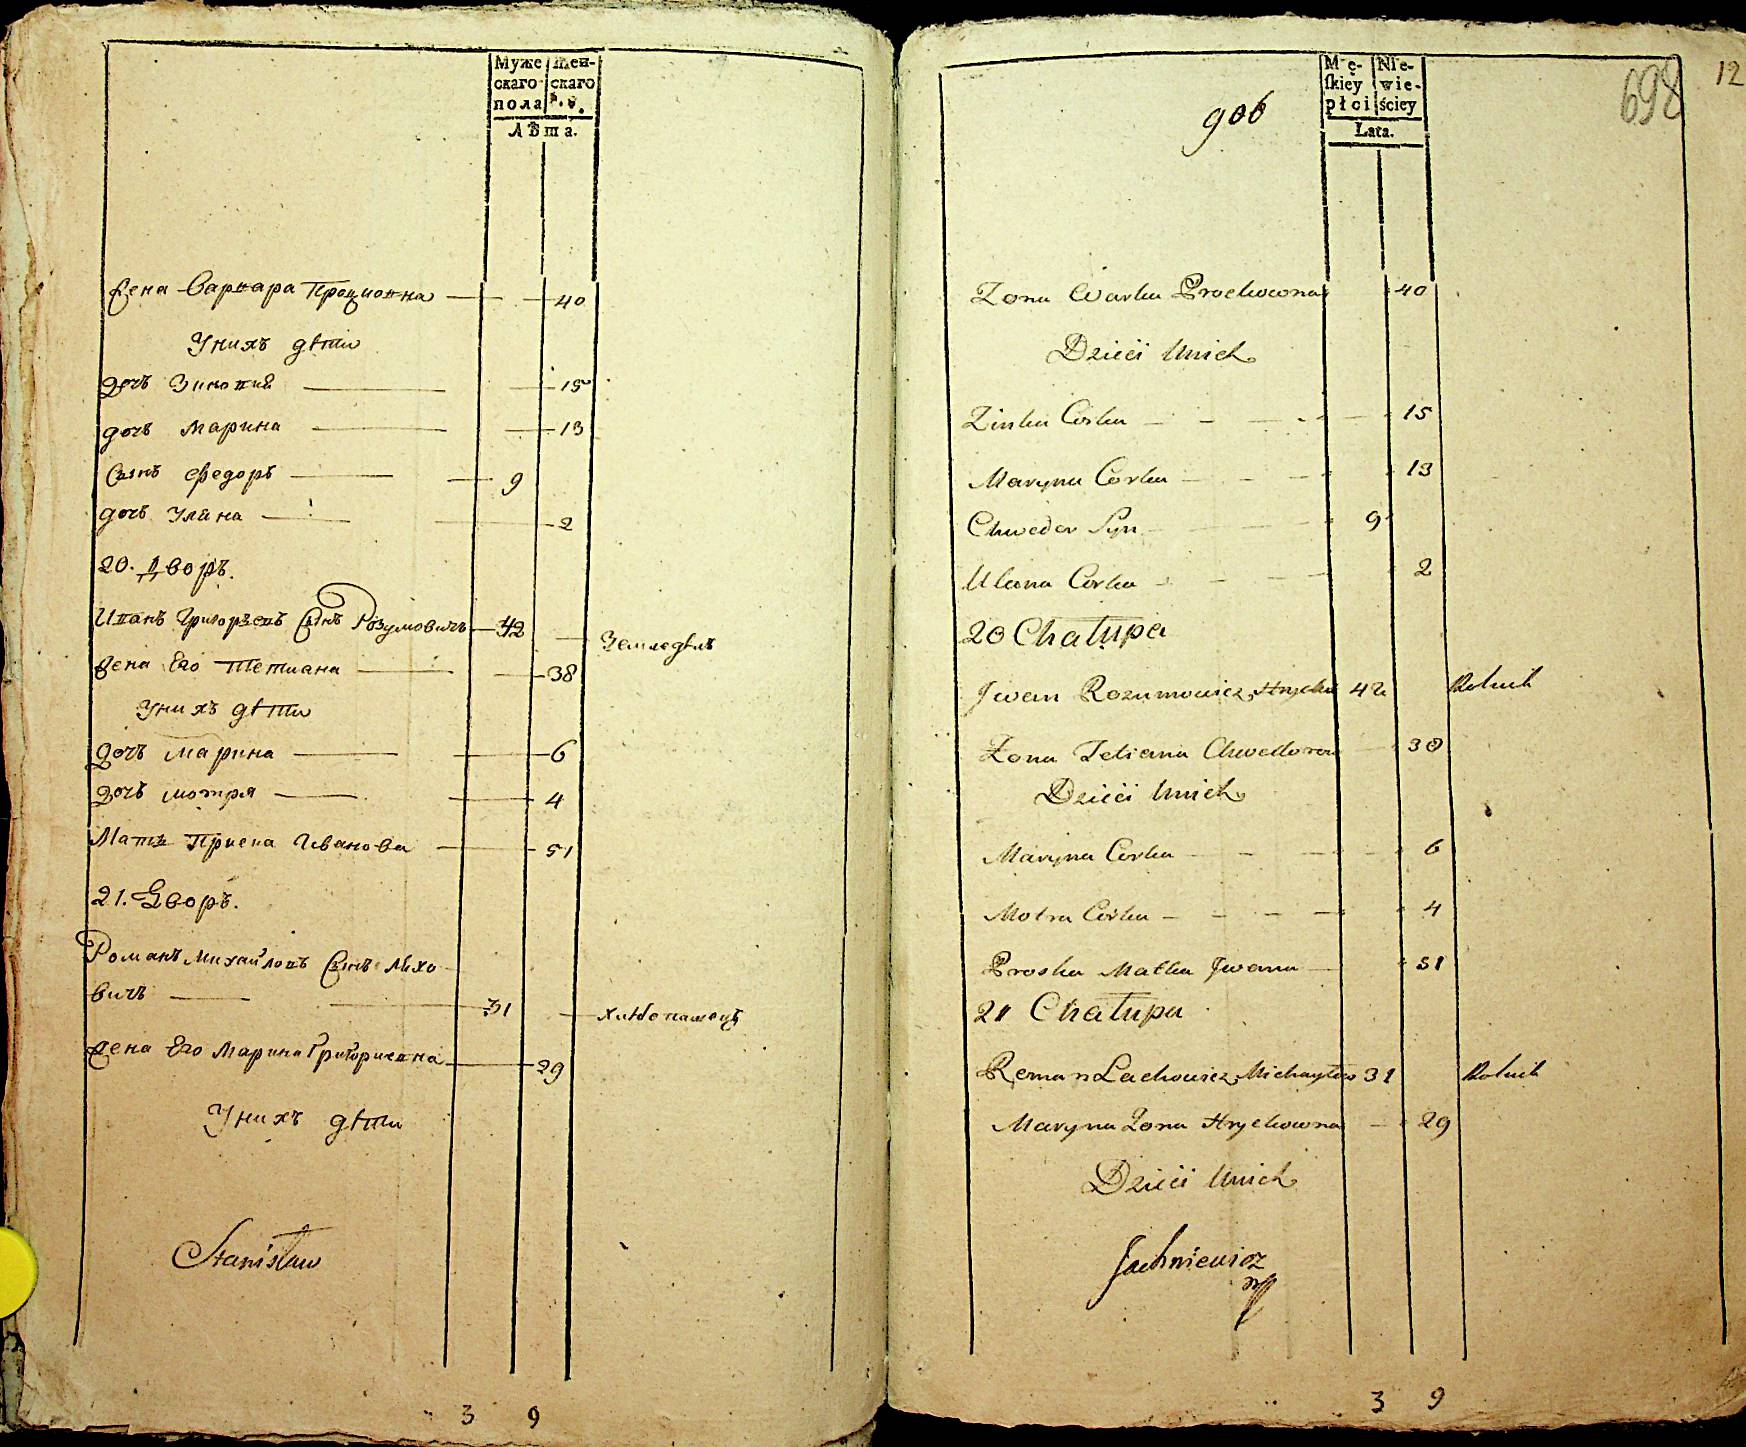 Муже Жен-
скаго скаго
пола
Лѣта.
Жена Варвара Процовна 40
У нихъ дѣти
дочь Зиновия 15
дочь Марина 13
Сынъ Федоръ 9
дочь Уляна 2
20. Дворъ.
Иванъ Григорьевъ Сынъ Розумовичъ 42 Земледѣлъ
Жена Его Тетиана 38
У нихъ дѣти
дочь Марина 6
дочь Мотря 4
Мать Присна Иванова 51
21. Дворъ.
Романъ Михайловъ Сынъ Ляхо
вичъ 31 хлѣбопашецъ
Жена Его Марина Григориевна 29
У нихъ дѣти
Stanisław
3 9
698 12
906
Mę- Nie-
skiey wie-
płci ściey
Lata.
Zona Warka Prockowna 40
Dzieći Unich
Zinka Corka 15
Maryna Corka 13
Chwedor Syn 9
Ulana Corka 2
20 Chałupa
Jwan Rozumowicz Hrycków 42 Rolnik
Żona Tetiana Chwedorow 38
Dzieći Unich
Maryna Corka 6
Motra Corka 4
Proska Matka Jwana 51
21 Chałupa
Roman Lachowicz Michayłow 31 Rolnik
Maryna Zona Hryckowna 29
Dzieći Unich
Jachniewicz
mp
3 9